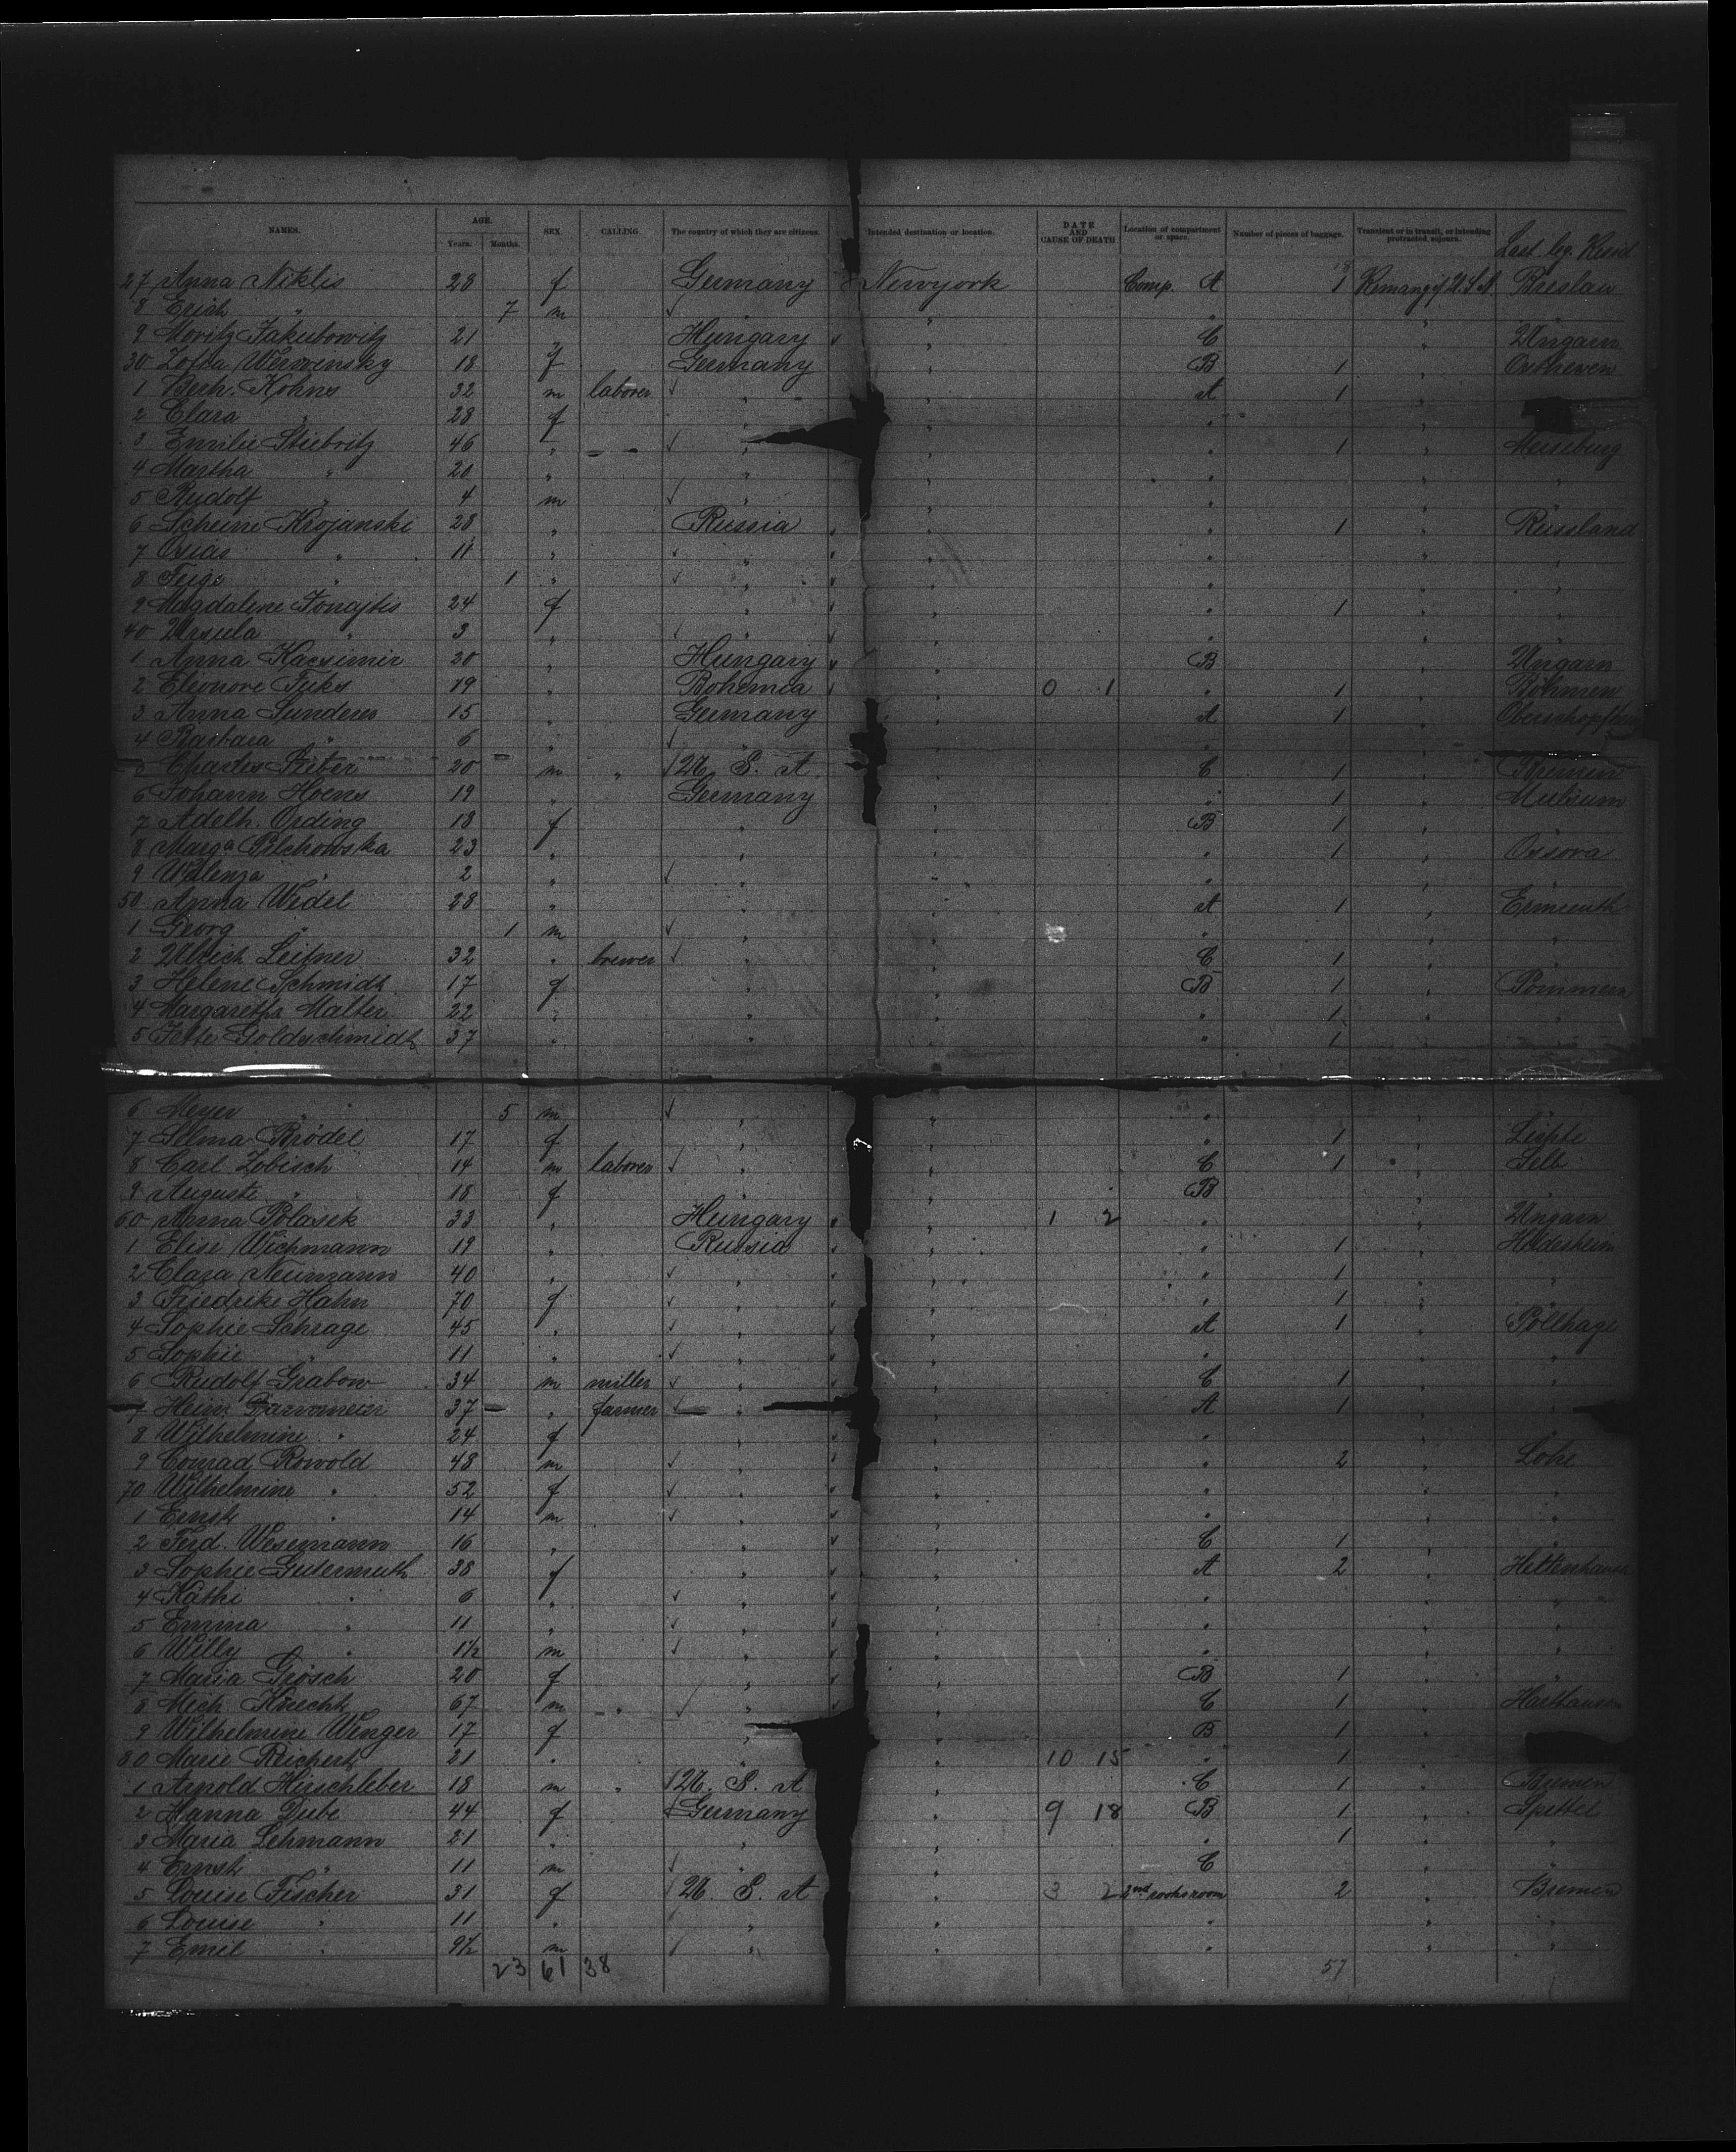 NAMES. AGE. Years. Months. SEX CALLING. The country of which they are citizens. Intended destination or location. DATE AND CAUSE OF DEATH Location of compartment or space. Number of pieces of baggage. Transient or in transit, or intending protracted sojourn. Last leg. Resid.
27 Anna Niklis 28 f Germany Newyork Comp. A 1 Breslau
8 Erich " 7 m
9 Moritz Jakubowitz 21 " Hungary " C " Ungarn
30 Werwinsky 18 f Germany " B 1 "
1 Kohns 32 m laborer " " A 1 "
2 Clara " 28 f " " "
3 Emilie Stiebritz 46 " " " 1 " Merseburg
4 Martha " 20 " " " "
5 Rudolf " 4 m " " "
6 Scheine Krojanski 28 " Russia " " 1 " Russland
7 Osias " 11 " " " "
8 Feige " 1 " " " "
9 Magdalene 24 f " " " 1 "
40 Ursula " 3 " " " "
1 Anna Kacsimir 20 " Hungary " B " Ungarn
2 Eleonore Fuks 19 " Bohemia " 0 1 " 1 " Böhmen
3 Anna Sunderes 15 " Germany " A 1 "
4 Barbara " 6 " " " "
5 Charles 20 m " U. S. A. " C 1 " Bremen
6 Johann Hoens 19 " Germany " " 1 "
7 Adelh. Ording 18 f " " B 1 "
8 Marga Pilchowska 23 " " " " 1 "
9 " 2 " " " "
50 Anna Wedel 28 " " " A 1 "
1 Georg " 1 m " " "
2 Ulrich Leitner 32 " brewer " " C 1 "
3 Helene Schmidt 17 f " " B 1 " Pommern
4 Margaretha Malter 22 " " " " 1 "
5 Jette Goldschmidt 37 " " " " 1
6 Meyer " 5 m " " "
7 Selma Brödel 17 f " " " 1 "
8 Carl Zobisch 14 m laborer " " C 1 " Selb
9 Auguste " 18 f " B
60 Anna Polasek 33 " Hungary " 1 2 " " Ungarn
1 Elise Wichmann 19 " Russia " " 1 " Hildesheim
2 Clara Neumann 40 " " " " 1 "
3 Friedrike Hahn 70 f " " " 1 "
4 Sophie Schrage 45 " " " A 1 " Pollhage
5 Sophie " 11 " " " "
6 Rudolf Grabow 34 m miller " " C 1 "
7 Heinr. 37 " farmer " " A 1 "
8 Wilhelmine " 24 f " " "
9 Conrad Rowold 48 m " " " 2 " Lohe
70 Wilhelmine " 52 f " " "
1 Ernst " 14 m " " "
2 Ferd. Wesemann 16 " " " C 1 "
3 Sophie Gutermuth 38 f " " A 2 "
4 Käthi " 6 " " " "
5 Emma " 11 " " " "
6 Willy " 1½ m " " "
7 Maria Grösch 20 f " " B 1 "
8 Mich. Knecht 67 m " " " C 1 " Harthausen
9 Wilhelmine Winger 17 f " " B 1 "
80 Marie Reichert 21 " " 10 15 " 1
1 Arnold Hirschleber 18 m " U. S. A " C 1 " Bremen
2 Hanna Dube 44 f Germany " 9 18 B 1 "
3 Maria Lehmann 21 " " " " 1 "
4 Ernst " 11 m " " C "
5 Louise Fischer 31 f U. S. A " 3 2 2 " Bremen
6 Louise " 11 " " " "
7 Emil " 9½ m " " "
23 61 38 57